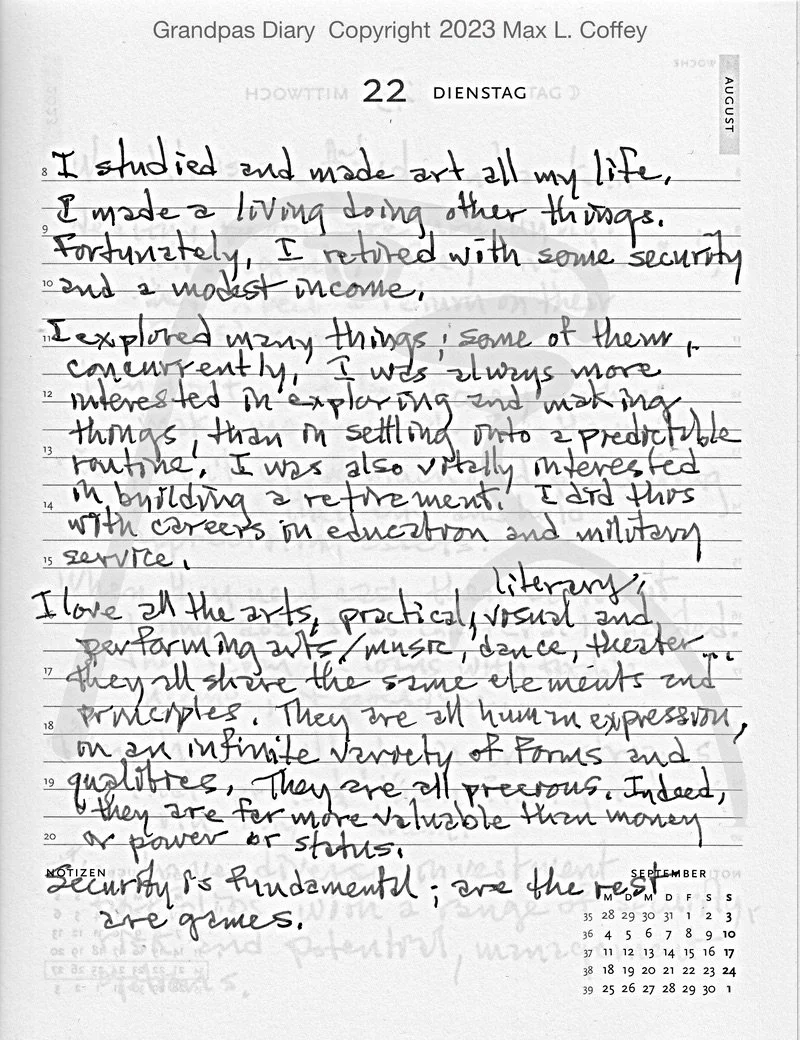 Grandpas Diary Copyright 2023 Max L. Coffey
22 DIENSTAG
AUGUST
8 I studied and made art all my life.
I made a living doing other things.
9
Fortunately, I retired with some security
10 and a modest income.
11 I explored many things; some of them,
concurrently. I was always more
12 interested in exploring and making
things, than in settling into a predictable
13
routine. I was also vitally interested
14 in building a retirement. I did this
with careers in education and military
15 service.
literary,
I love all the arts, practical, visual and
performing arts/music, dance, theater...
17 they all share the same elements and
18 principles. They are all human expression,
in an infinite variety of forms and
19 qualities. They are all precious. Indeed,
they are far more valuable than money
20 or power or status.
NOTIZEN
Security is fundamental; are the rest
are games.
SEPTEMBER
M D M D F S S
35 28 29 30 31 1 2 3
36 4 5 6 7 8 9 10
37 11 12 13 14 15 16 17
38 18 19 20 21 22 23 24
39 25 26 27 28 29 30 1